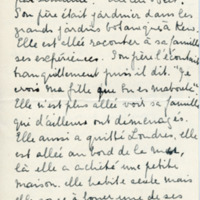 Son père était jardinier dans les
grands jardins botaniqu à Kew.
Elle est allée raconter à sa famille
ses expériences. Son père l'écoutait
tranquillement puis il dit. "Je
crois ma fille que tu es maboule"
Elle n'est plus allée voir sa famille
qui d'ailleurs ont déménagés.
Elle aussi a quitté Londres, elle
est allée au bord de la mer,
là elle a acheté une petite
maison. elle habite seule mais